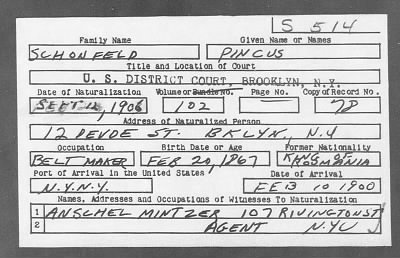 S 514
Family Name Given Name or Names
SCHONFELD PINCUS
Title and Location of Court
U. S. DISTRICT COURT, BROOKLYN, N.Y.
Date of Naturalization Volume or Bundle No. Page No. Copy of Record No.
SEPT 12, 1906 102 — 70
Address of Naturalized Person
12 DEVOE ST. BKLYN, N.Y
Occupation Birth Date or Age Former Nationality
BELT MAKER FEB 20, 1867 OF ROUMANIA
Port of Arrival in the United States Date of Arrival
N.Y.N.Y. FEB 10 1900
Names, Addresses and Occupations of Witnesses To Naturalization
1 ANSCHEL MINTZER 107 RIVINGTON ST
2 AGENT NYC